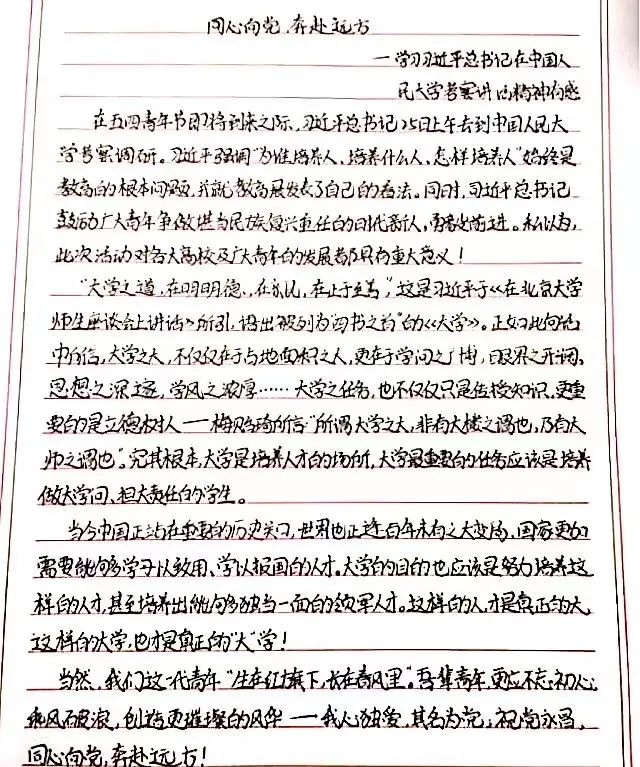 同心向党,奔赴远方
—学习习近平总书记在中国人
民大学考察讲话精神有感
在五四青年节即将到来之际,习近平总书记25日上午去到中国人民大
学考察调研。习近平强调“为谁培养人、培养什么人、怎样培养人”始终是
教育的根本问题,并就教育展发表了自己的看法。同时,习近平总书记
鼓励广大青年争做堪当民族复兴重任的时代新人,勇毅前进。私以为,
此次活动对各大高校及广大青年的发展都具有重大意义!
“大学之道,在明明德,在亲民,在止于至善”,这是习近平于《在北京大学
师生座谈会上讲话》所引,语出被列为“四书之首”的《大学》。正如此句话
中所言,大学之大,不仅仅在于占地面积之大,更在于学问之广博,眼界之开阔、
思想之深邃,学风之浓厚……大学之任务,也不仅仅只是传授知识,更重
要的是立德树人——梅贻琦所言:“所谓大学之大,非有大楼之谓也,乃有大
师之谓也”。究其根本,大学是培养人才的场所,大学最重要的任务应该是培养
做大学问、担大责任的学生。
当今中国正站在重要的历史关口,世界也正逢百年未有之大变局,国家更加
需要能够学以致用、学以报国的人才。大学的目的也应该是努力培养这
样的人才,甚至培养出能够独当一面的领军人才。这样的人,才是真正的大,
这样的大学,也才是真正的“大”学!
当然,我们这一代青年“生在红旗下,长在春风里”。吾辈青年,更应不忘初心,
乘风破浪,创造更璀璨的风华——我心独爱,其名为党;祝党永昌,
同心向党,奔赴远方!